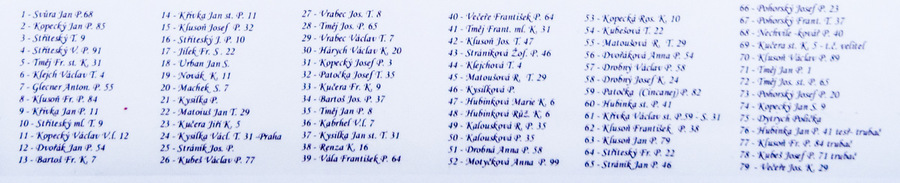 1 - Svúra Jan P.68
2 - Kopecký Jan P. 85
3 - Stříteský T. 9
4 - Stříteský V. P. 91
5 - Tměj Fr. st. K. 31
6 - Klejch Václav T. 4
7 - Glecner Anton. P. 55
8 - Klusoň Fr. P. 84
9 - Křivka Jan P. 11
10 - Stříteský ml. T. 9
11 - Kopecký Václav V.l. 12
12 - Dvořák Jan P. 54
13 - Bartoš Fr. K. 7
14 - Křivka Jan st. P. 11
15 - Klusoň Josef P. 32
16 - Stříteský J. P. 10
17 - Jílek Fr. S. 22
18 - Urban Jan S.
19 - Novák K. 11
20 - Machek S. 7
21 - Kysilka P.
22 - Matoiuš Jan T. 29
23 - Kučera Jiří K. 5
24 - Kysilka Václ. T. 31 -Praha
25 - Stráník Jos. P.
26 - Kubeš Václav P. 77
27 - Vrabec Jos. T. 8
28 - Tměj Jos. P. 65
29 - Vrabec Václav T. 7
30 - Hárych Václav K. 20
31 - Kopecký Josef P. 3
32 - Patočka Josef T. 35
33 - Kučera Fr. K. 9
34 - Bartoš Jos. P. 37
35 - Tměj Jan P. 8
36 - Kabrhel V.l. 7
37 - Kysilka Jan st. T. 31
38 - Renza K. 16
39 - Vála František P. 64
40 - Večeře František P. 64
41 - Tměj Frant. ml. K. 31
42 - Klusoň Jos. T. 47
43 - Stráníková Žof. P. 46
44 - Klejchová T. 4
45 - Matoušová R. T. 29
46 - Kysilková P.
47 - Hubinková Marie K. 6
48 - Hubinková Růž. K. 6
49 - Kalousková R. P. 35
50 - Kalousková P. 35
51 - Drobná Anna P. 58
52 - Motyčková Anna P. 99
53 - Kopecká Ros. K. 10
54 - Kubešová T. 22
55 - Matoušová R. T. 29
56 - Dvořáková Anna P. 54
57 - Drobný Václav P. 58
58 - Drobný Josef K. 24
59 - Patočka (Cincanej) P. 82
60 - Hubinka st. P. 41
61 - Křivka Václav st. P.59 - S. 31
62 - Klusoň František P. 38
63 - Klusoň Jan P. 79
64 - Stříteský Fr. P. 22
65 - Stráník Jan P. 46
66 - Pohorský Josef P. 23
67 - Pohorský Frant. T. 37
68 - Nechvíle -kovář P. 40
69 - Kučera st. K. 5 - t.č. velitel
70 - Klusoň Václav P. 89
71 - Tměj Jan P. 1
72 - Tměj Jos. st. P. 65
73 - Pohorský Josef P. 20
74 - Kopecký Jan S. 9
75 - Dytrych Polička
76 - Hubinka Jan P. 41 test- trubač
77 - Klusoň Fr. P. 84 trubač
78 - Kubeš Josef P. 71 trubač
79 - Večeře Jos. K. 29